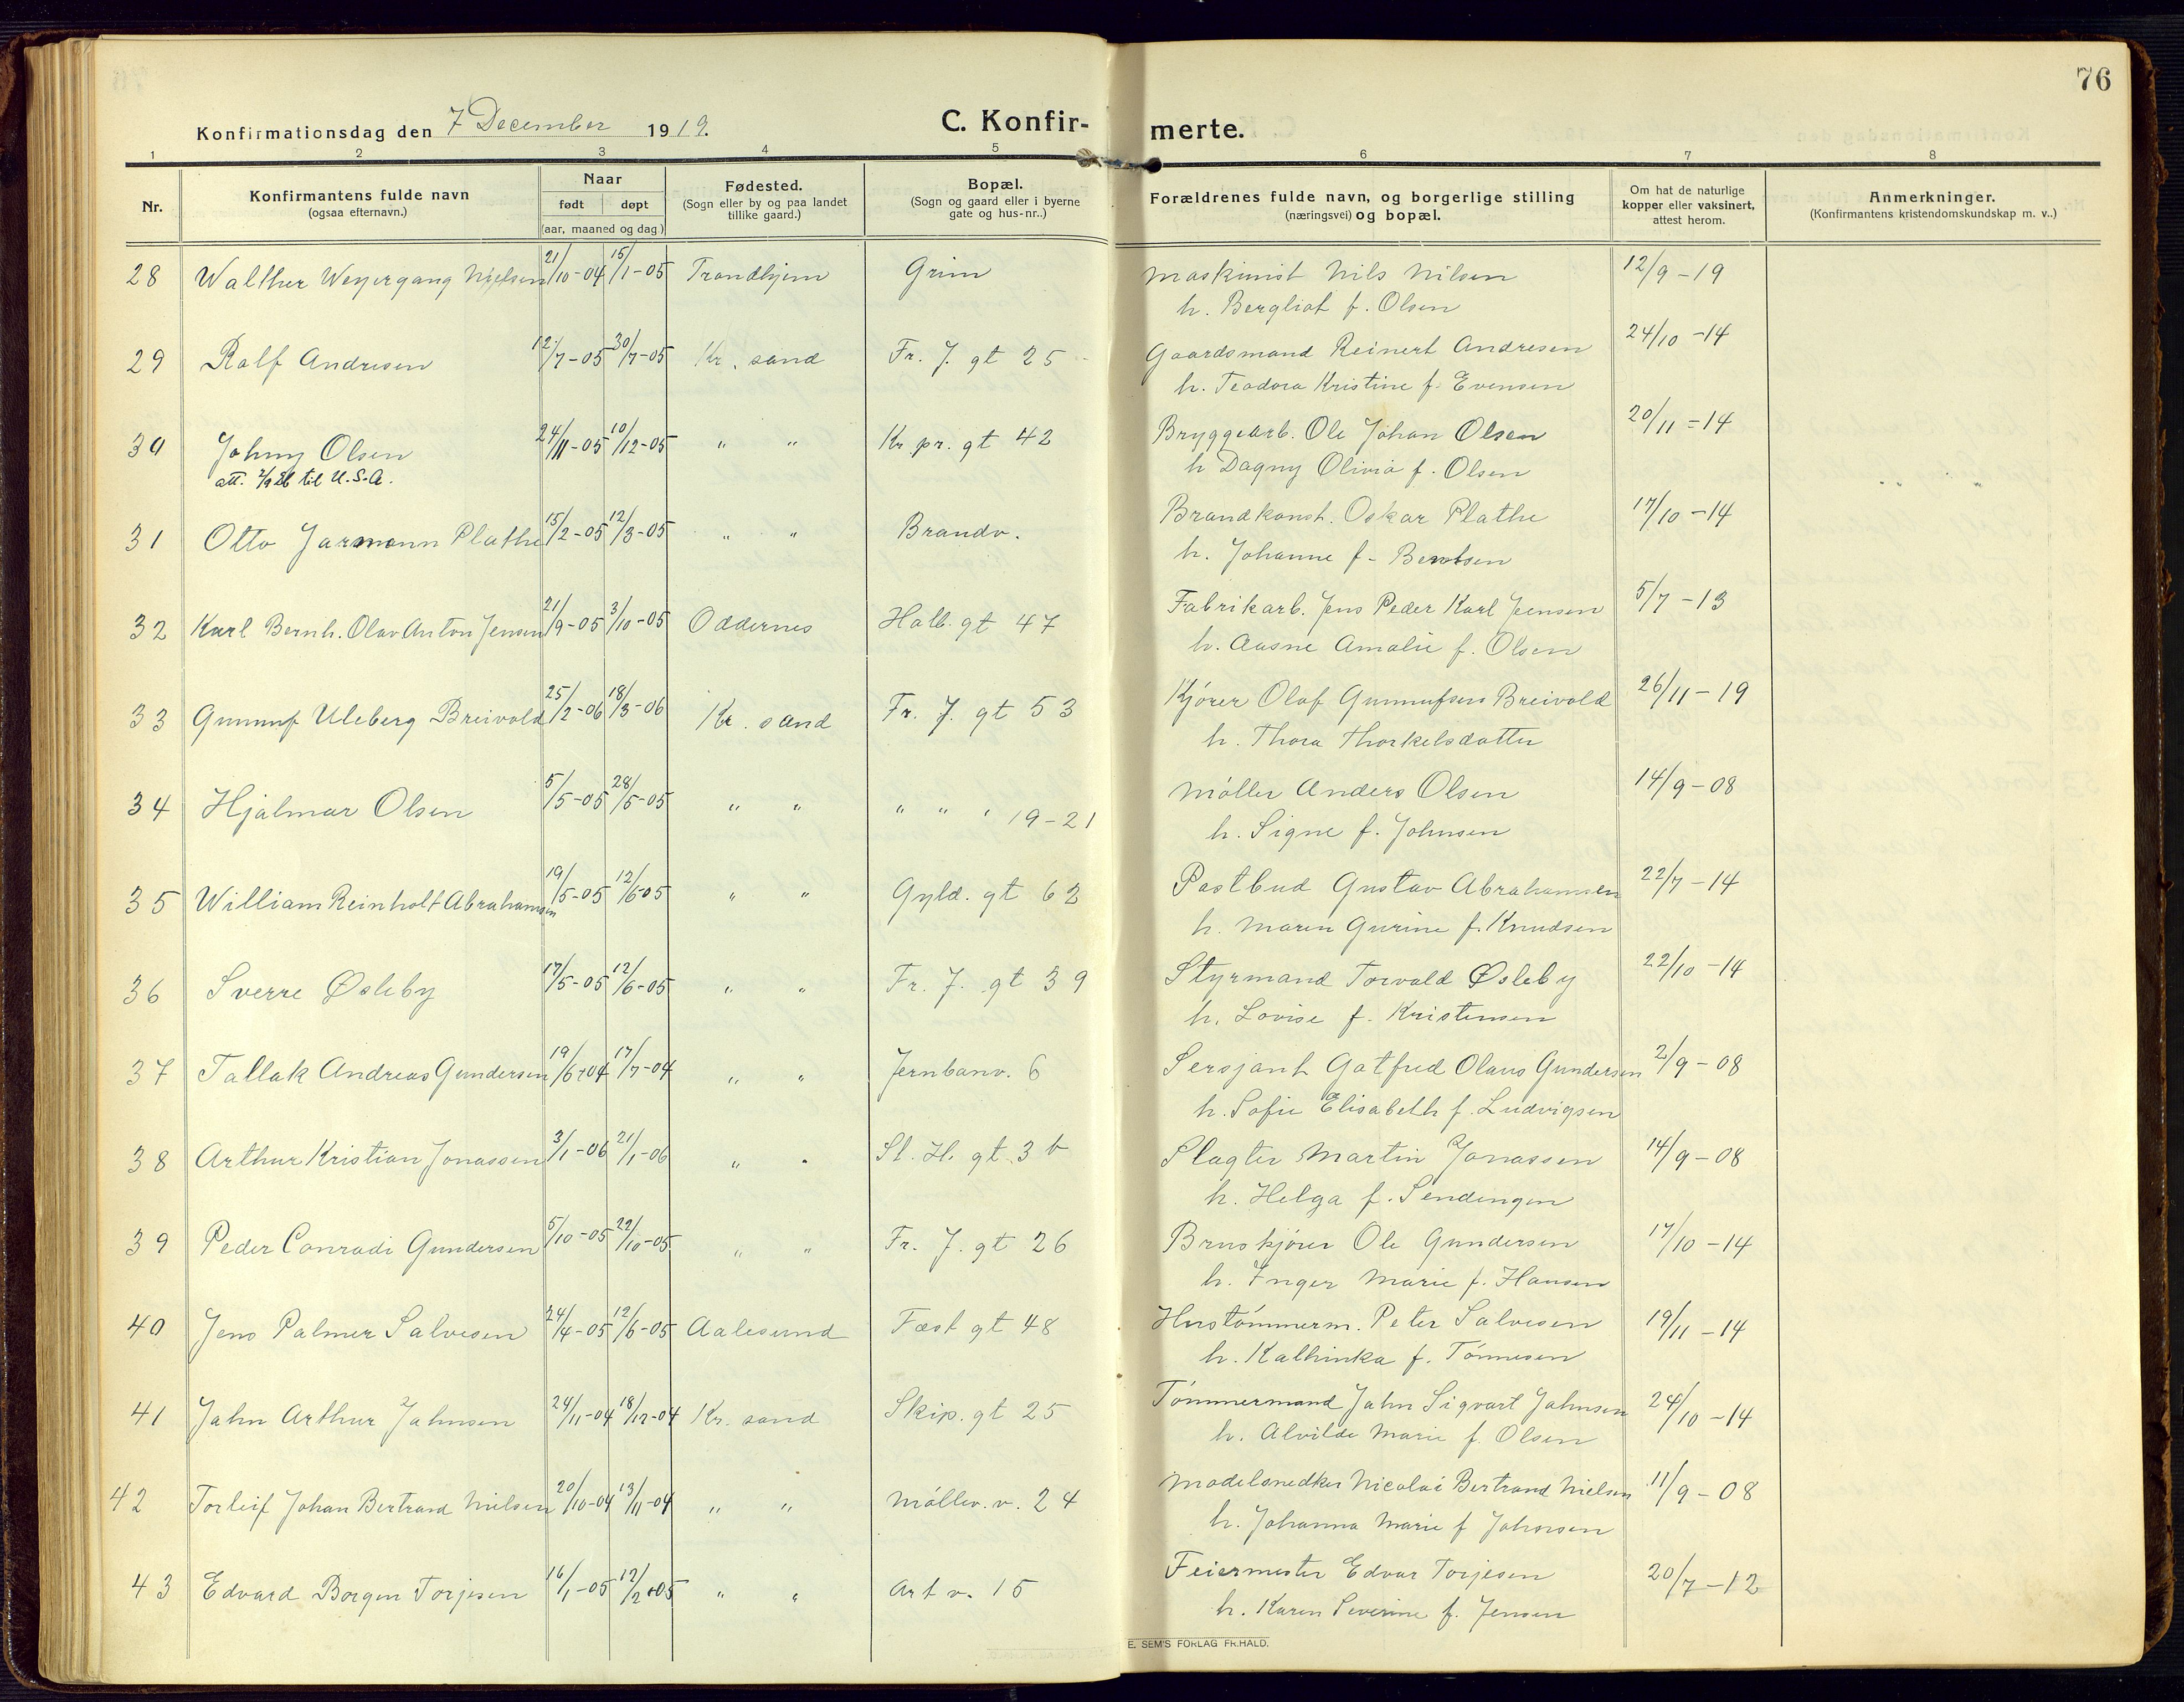 76
Konfirmationsdag den 7 December 1919.
C. Konfir-merte.
1 2 3 4 5 6 7 8
Nr.
Konfirmantens fulde navn
(ogsaa efternavn.)
Naar
født døpt
(aar, maaned og dag)
Fødested.
(Sogn eller by og paa landet
tillike gaard.)
Bopæl.
(Sogn og gaard eller i byerne
gate og hus-nr..)
Forældrenes fulde navn, og borgerlige stilling
(næringsvei) og bopæl.
Om hat de naturlige
kopper eller vaksinert,
attest herom.
Anmerkninger.
(Konfirmantens kristendomskundskap m. v..)
28 Walther Weyergang Nielsen 21/10-04 15/1-05 Trondhjem Grim Maskinist Nils Nilsen 12/9-19
h. Bergliot f. Olsen
29 Rolf Andresen 12/7-05 30/7-05 Kr. sand Fr. J. gt 25 Gaardsmand Reinert Andresen 24/10-14
h. Teodora Kristine f. Evensen
30 Johny Olsen 24/11-05 10/12-05 " " Kr. pr. gt 42 Bryggearb. Ole Johan Olsen 20/11-14
att. 2/9 26 til U.S.A. h Dagny Olivia f. Olsen
31 Otto Jarmann Plathe 15/2-05 12/3-05 " " Brandv. Brandkonst. Oskar Plathe 17/10-14
h. Johanne f. Berntsen
32 Karl Bernh. Olav Anton Jensen 21/9-05 3/10-05 Oddernes Holb. gt 47 Fabrikarb. Jens Peder Karl Jensen 5/7-13
h. Aasne Amalie f. Olsen
33 Gunnuf Uleberg Breivold 25/2-06 18/3-06 Kr. sand Fr. J. gt 53 Kjører Olaf Gunnufsen Breivold 26/11-19
h. Thora Thorkelsdatter
34 Hjalmar Olsen 5/5-05 28/5-05 " " " " " 19-21 Møller Anders Olsen 14/9-08
h. Signe f. Johnsen
35 William Reinholt Abrahamsen 19/5-05 12/6-05 " " Gyld. gt 62 Postbud Gustav Abrahamsen 22/7-14
h. Maren Gurine f. Knudsen
36 Sverre Øsleby 17/5-05 12/6-05 " " Fr. J. gt 39 Styrmand Torvald Øsleby 22/10-14
h. Lovise f. Kristensen
37 Tallak Andreas Gundersen 19/6-04 17/7-04 " " Jernbanv. 6 Sersjant Gotfred Olaus Gundersen 2/9-08
h. Sofie Elisabeth f. Ludvigsen
38 Arthur Kristian Jonassen 3/1-06 21/1-06 " " Sl. H. gt 3 b Slagter Martin Jonassen 14/9-08
h. Helga f. Sendingen
39 Peder Conradi Gundersen 5/10-05 22/10-05 " " Fr. J. gt 26 Bruskjører Ole Gundersen 17/10-14
h. Inger Marie f. Hansen
40 Jens Palmer Salvesen 24/4-05 12/6-05 Aalesund Fæst gt 48 Hustømmerm. Peter Salvesen 19/11-14
h. Kathinka f. Tønnesen
41 John Arthur Johnsen 24/11-04 18/12-04 Kr. sand Skip. gt 25 Tømmermand John Sigvart Johnsen 24/10-14
h. Alvilde Marie f. Olsen
42 Torleif Johan Bertrand Nielsen 20/10-04 13/11-04 " " Møllev. v. 24 Modelsnedker Nicolai Bertrand Nielsen 11/9-08
h. Johanna Marie f Johnsen
43 Edvard Borgen Torjesen 16/1-05 12/2-05 " " Art v. 15 Feiermester Edvar Torjesen 20/7-12
h. Karen Severine f. Jensen
E. SEM'S FORLAG FR.HALD.